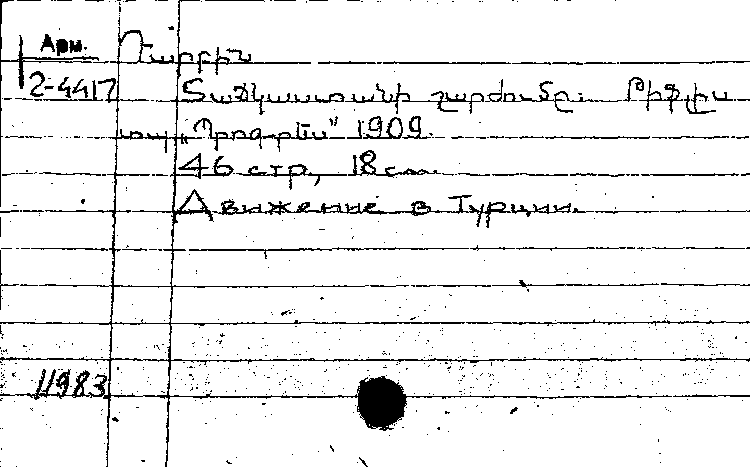 Арм.
2-4417
Դարբին
Տաճկաստանի շարժումը. Թիֆլիս
տպ. „Պրոգրես" 1909.
46 стр, 18 см.
Движение в Турции.
11983